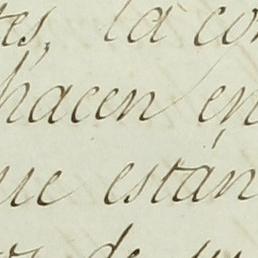 tes, la con
hacen en
que están
de